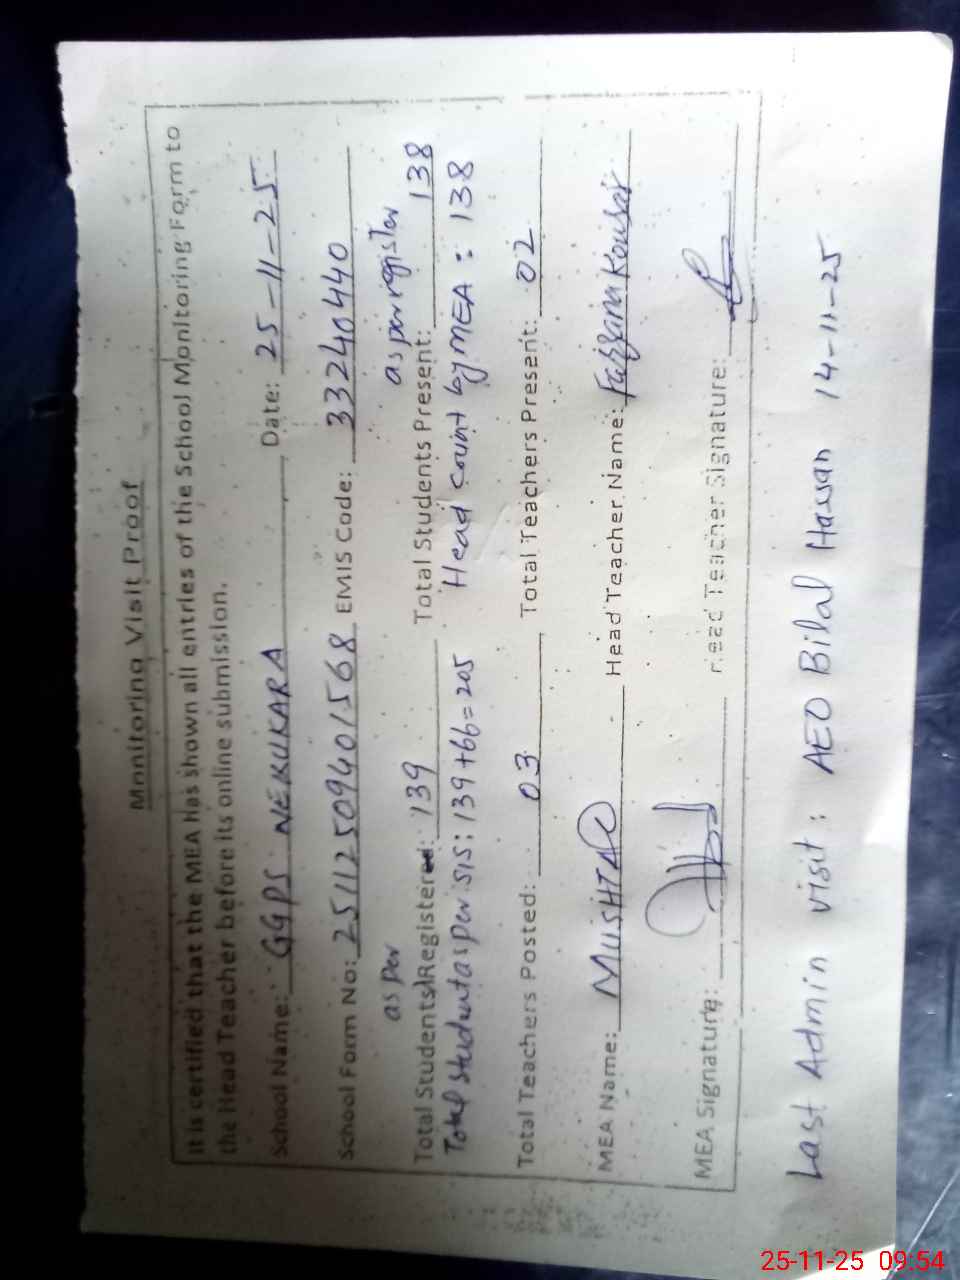 Monitoring Visit Proof
It is certified that the MEA has shown all entries of the School Monitoring Form to
the Head Teacher before its online submission.
School Name: GGPS NEKUKARA Date: 25-11-25
School Form No: 25112509401568 EMIS Code: 33240440
as per as per register
Total Students Registered: 139 Total Students Present: 138
Total student as per SIS: 139+66=205 Head count by MEA : 138
Total Teachers Posted: 03 Total Teachers Present: 02
MEA Name: MUSHTAQ Head Teacher Name: Farzana Kousar
MEA Signature: Head Teacher Signature:
Last Admin visit : AEO Bilal Hassan 14-11-25
25-11-25 09:54